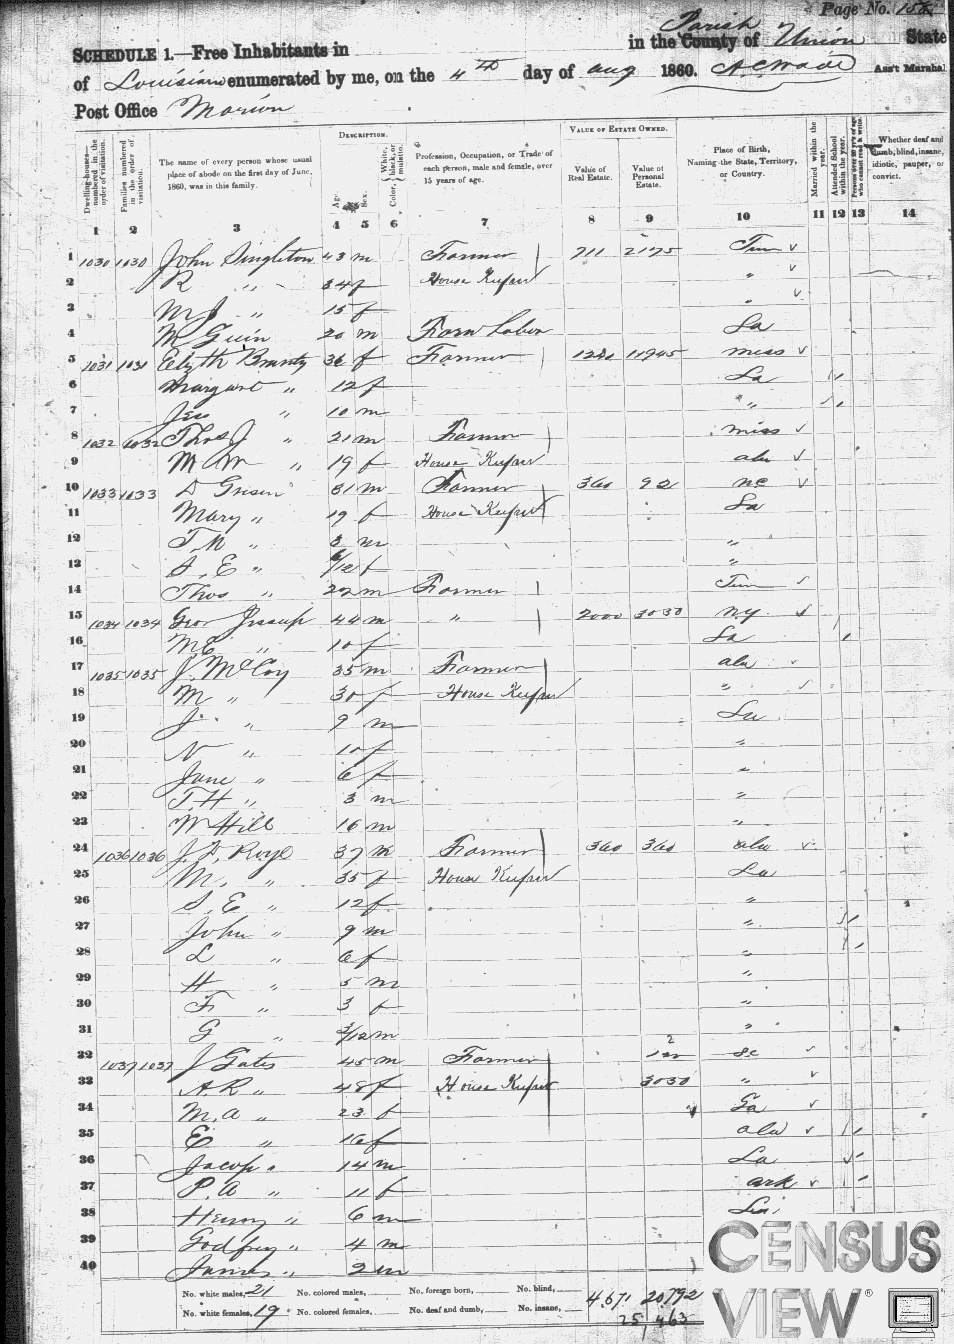 Page No. 156
SCHEDULE 1.—Free Inhabitants in in the County of Parish Union State
of Louisiana enumerated by me, on the 4th day of Aug 1860. A. C. Wade Ass't Marshal
Post Office Marion
Dwelling-houses—numbered in the order of visitation.
Families numbered in the order of visitation.
The name of every person whose usual place of abode on the first day of June, 1860, was in this family.
DESCRIPTION.
Age.
Sex.
Color, White, black, or mulatto.
Profession, Occupation, or Trade of each person, male and female, over 15 years of age.
VALUE OF ESTATE OWNED.
Value of Real Estate.
Value of Personal Estate.
Place of Birth, Naming the State, Territory, or Country.
Married within the year.
Attended School within the year.
Persons over 20 y'rs of age who cannot read & write.
Whether deaf and dumb, blind, insane, idiotic, pauper, or convict.
1 2 3 4 5 6 7 8 9 10 11 12 13 14
1 1030 1030 John Singleton 43 m Farmer 711 2175 Tenn
2 R " 34 f House Keeper "
3 M J " 15 f "
4 M Guin 20 m Farm Labor La
5 1031 1031 36 f Farmer 11945 Miss
6 Margaret " 12 f La
7 Jess " 10 m "
8 1032 1032 Thos J " 21 m Farmer Miss
9 M A M " 19 f House Keeper Ala
10 1033 1033 D 31 m Farmer 360 92 NC
11 Mary " 19 f House Keeper La
12 T. M " 3 m "
13 S. E " 6/12 f "
14 Thos " 22 m Farmer Tenn
15 1034 1034 Geo Jessup 44 m " 2000 3030 N.Y
16 M E " 10 f La
17 1035 1035 J. McCoy 35 m Farmer Ala
18 M " 30 f House Keeper "
19 J " 9 m La
20 N " 10 f "
21 Jane " 6 f "
22 T. H " 3 m "
23 M Hill 16 m "
24 1036 1036 37 m Farmer 360 360 Ala
25 M. " 35 f House Keeper La
26 S. E " 12 f "
27 John " 9 m "
28 L " 6 f "
29 H " 5 m "
30 F " 3 f "
31 G " 3/12 m "
32 1037 1037 J Gates 45 m Farmer SC
33 A. R " 48 f House Keeper 3030 "
34 M. A " 23 f Ga
35 E " 16 f Ala
36 Jacop " 14 m La
37 P. A " 11 f Ark
38 Henry " 6 m La
39 Godfrey " 4 m
40 James " 2 m
No. white males, 21 No. colored males, No. foreign born, No. blind,
No. white females, 19 No. colored females, No. deaf and dumb, No. insane,
4,671 20,792
25,463
CENSUS
VIEW®